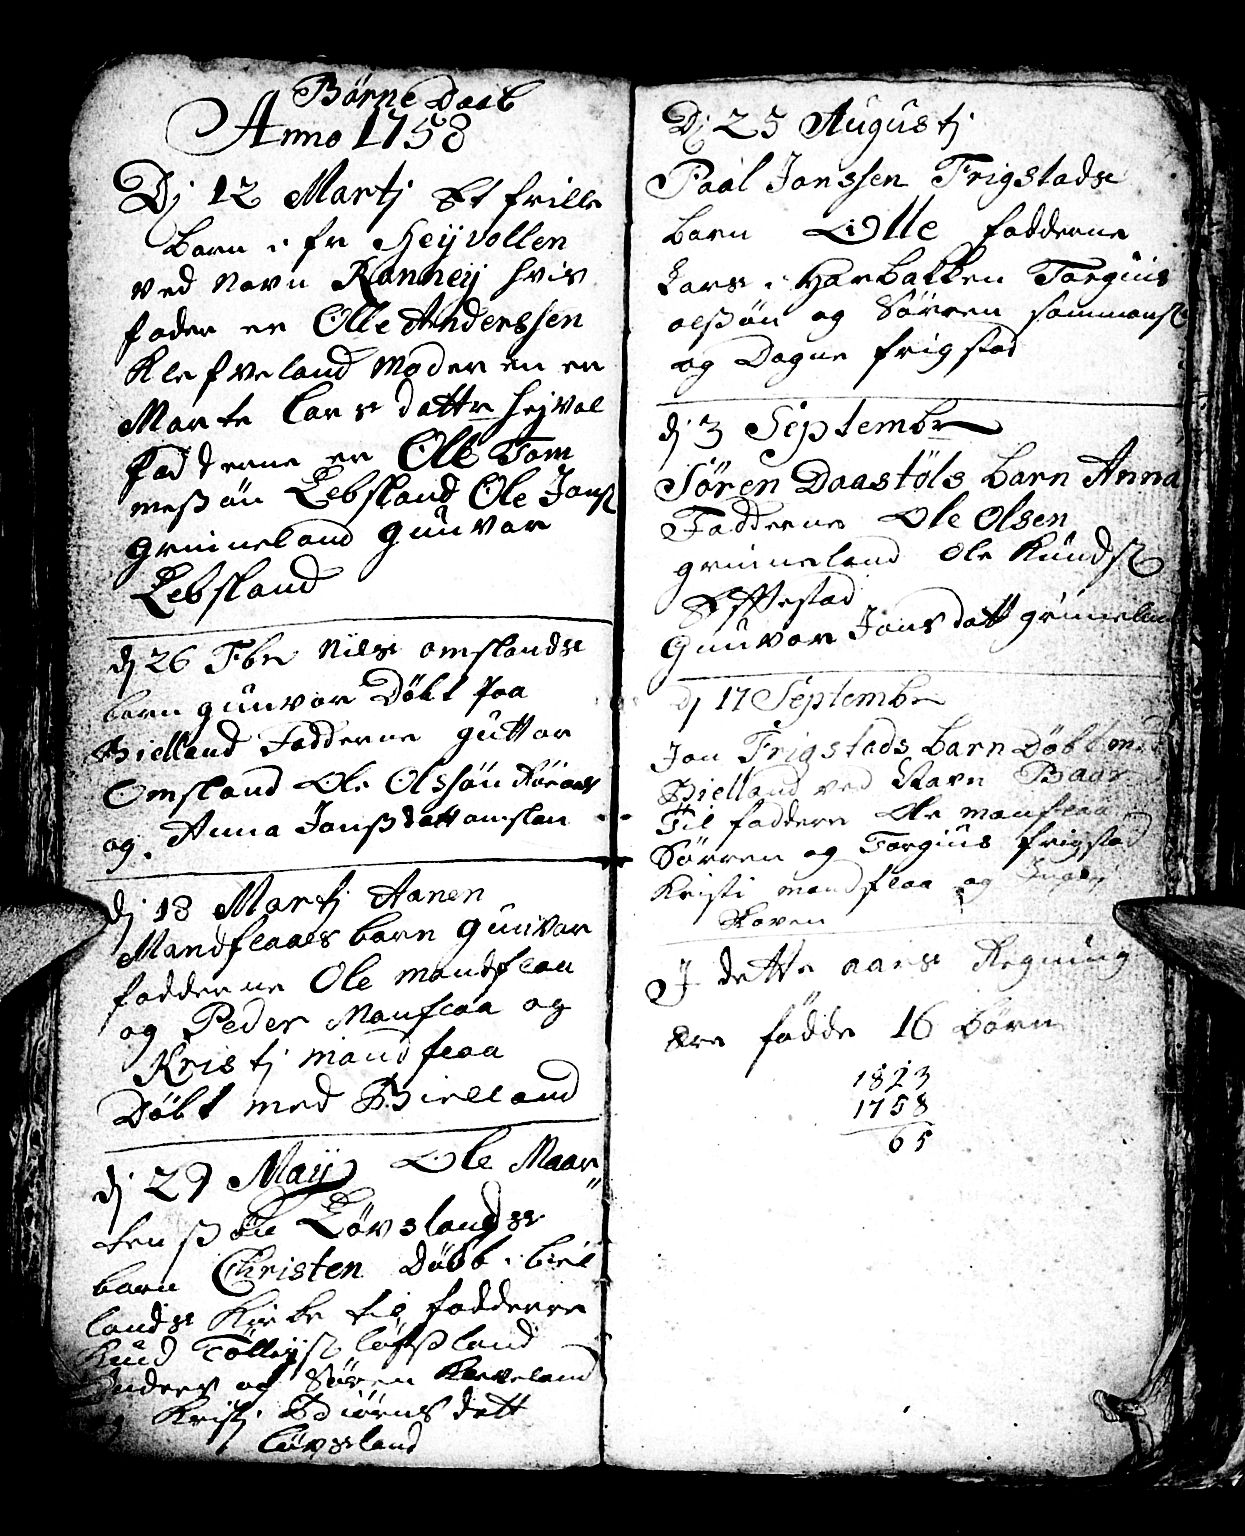 Börne Daab
Anno 1758
Dj 12 Martj Et frille
barn i fr Heijvollen
ved Navn Ronneij hvis
fader er Olle Anderssen
Klefveland Moderen er
Marte Lars dattr Hejvol
fadderne er Ole Tom
messön Lebsland Ole Jons
Grimeland Gunvor
Lebsland
dj 26 Fbr Nils omslands
barn gunvor Döbt paa
Bielland Fadderne guttor
Omsland Ole Olssön
og Anna Jonsdatt omslan
dj 18 Martj Aanen
Mandflaaes barn Gunvor
fadderne Ole mandflaa
og Peder Manflaa og
Kristj mandflaa
Döbt med Bielland
dj 29 Maij Ole Maar
tenssön Lövslands
barn Christen Döbt i biel
lands Kirke til fadderne
Knud Tollejs löfsland
Anders og Sören Kleveland
og Kristj Biörns datt
lövsland
Dj 25 Augustj
Paal Jonssen Frigstads
barn Olle fadderne
Lars i Harbakken Torgius
olssön og Sörren sammenst
og Dagne frigstad
dj 3 Septembr
Sören Daastöls barn Anna
Fadderne Ole Olsen
grimeland Ole Knuds
Gunvor Jonsdatt grimeland
dj 17 Septembr
Jon Frigstads barn Döbt med
Bielland ved Navn
Til faddere Ole manflaa
Sörren og Torgius frigstad
Kristi mandflaa og
Skoven
I dette aars Regning
ere födde 16 börn
1823
1758
65